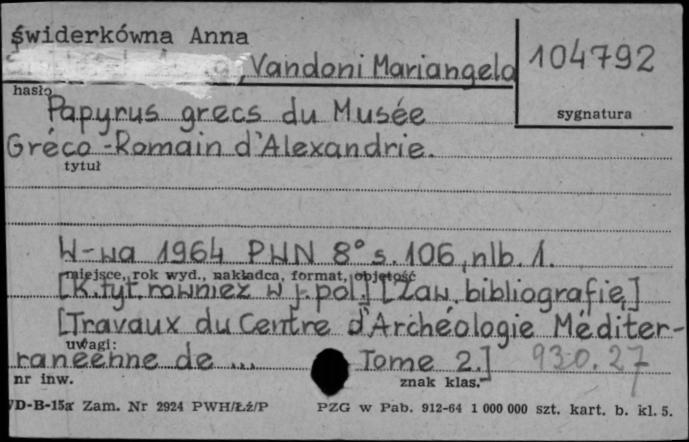 Świderkówna Anna
, Vandoni Mariangela
104792
hasło
sygnatura
Papyrus grecs du Musée
Gréco-Romain d'Alexandrie.
tytuł
W-wa 1964 PWN 8° s. 106, nlb. 1.
miejsce, rok wyd., nakładca, format, objętość
[K. tyt. również w j. pol.] [Zaw. bibliografię]
[Travaux du Centre d'Archéologie Méditer-
uwagi:
ranéenne de ... Tome 2.] 930.27
nr inw.
znak klas.
D-B-15a Zam. Nr 2924 PWH/Łź/P PZG w Pab. 912-64 1 000 000 szt. kart. b. kl. 5.